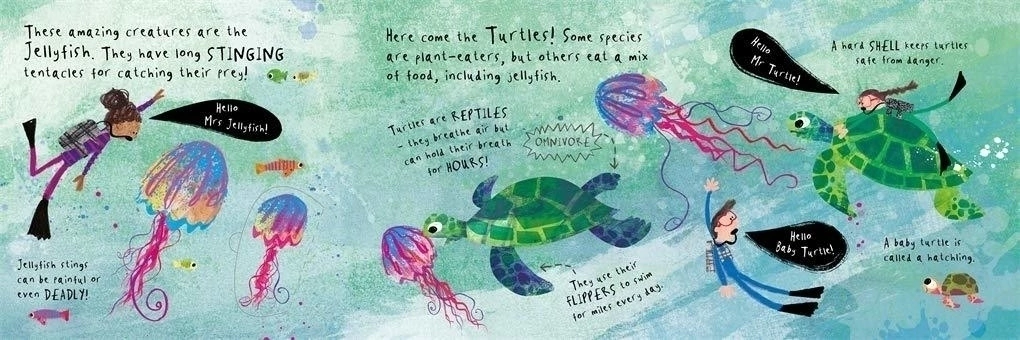 These amazing creatures are the
Jellyfish. They have long STINGING
tentacles for catching their prey!
Hello
Mrs Jellyfish!
Jellyfish stings
can be painful or
even DEADLY!
Here come the Turtles! Some species
are plant-eaters, but others eat a mix
of food, including jellyfish.
Turtles are REPTILES
- they breathe air but
can hold their breath
for HOURS!
OMNIVORE
They use their
FLIPPERS to swim
for miles every day.
Hello
Mr Turtle!
A hard SHELL keeps turtles
safe from danger.
Hello
Baby Turtle!
A baby turtle is
called a hatchling.